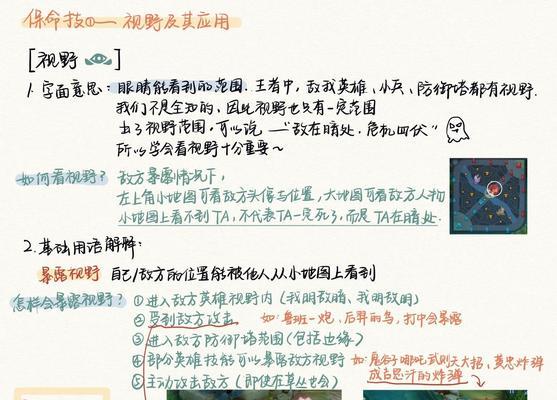 保命技①——视野及其应用
[视野]
1. 字面意思：眼睛能看到的范围. 王者中，敌我英雄、小兵、防御塔都有视野.
我们不是全知的，因此视野也只有一定范围
出了视野范围，可以说 —“敌在暗处，危机四伏”
所以学会看视野十分重要~
如何看视野？ 敌方暴露情况下，
左上角小地图可看敌方头像与位置，大地图可看敌方人物
小地图上看不到TA，不代表TA一定死了，而是TA在暗处.
2. 基础用语解释：
暴露视野 自己/敌方的位置能被他人从小地图上看到
怎样会暴露视野？ ①进入敌方英雄视野内（我明敌暗、我明敌明）
②受到敌方攻击 如：鲁班一炮、后羿的鸟，打中会暴露
③进入敌方防御塔范围（包括边缘）
④部分英雄技能可以暴露敌方视野 如：鬼谷子哪吒武则天大招，黄忠炸弹
成吉思汗的炸弹
⑤主动攻击敌方（即使在草丛也会）